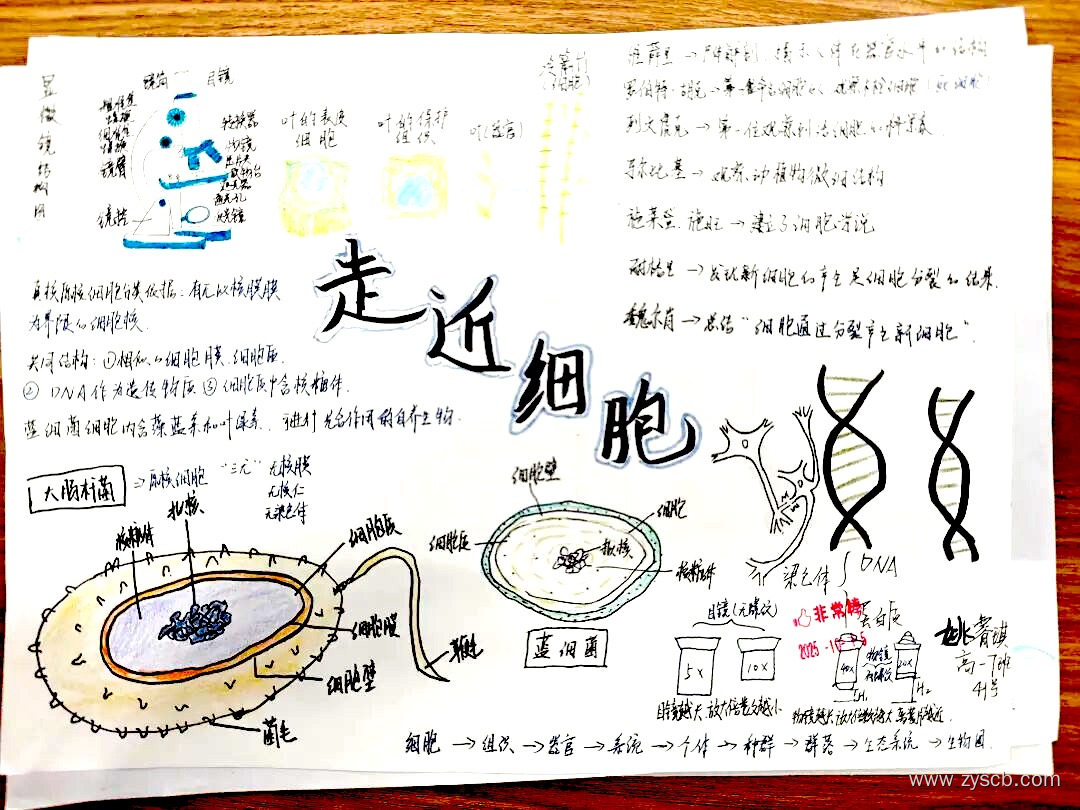 显微镜结构图
镜筒 目镜
粗准焦
螺旋
细准焦
螺旋
镜臂
镜柱
转换器
物镜
压片夹
载物台
遮光器
通光孔
反光镜
叶的表皮
细胞
叶的保护
组织
叶(器官)
维萨里 → 尸体解剖,揭示人体在器官水平的结构
罗伯特·胡克 →
列文虎克 → 第一位观察到活细胞的科学家
马尔比基 → 观察动植物微细结构
施莱登、施旺 → 建立了细胞学说
耐格里 → 发现新细胞的产生是细胞分裂的结果.
魏尔肖 → 总结“细胞通过分裂产生新细胞”.
走近细胞
真核原核细胞分类依据:有无以核膜膜
为界限的细胞核.
共同结构:①相似的细胞膜、细胞质.
② DNA作为遗传物质 ③细胞质中含核糖体.
蓝细菌细胞内含藻蓝素和叶绿素,可进行光合作用的自养生物.
大肠杆菌 ⇒ 原核细胞 “三元” 无核膜
无核仁
无染色体
拟核
核糖体
细胞质
细胞膜
细胞壁
鞭毛
菌毛
细胞壁
细胞
细胞质
拟核
核糖体
蓝细菌
染色体 DNA
蛋白质
目镜(无螺纹)
5× 10×
目镜越大 放大倍数越小
非常棒
2025
40×
H₁ H₂
姚
高一7班
41号
细胞 → 组织 → 器官 → 系统 → 个体 → 种群 → 群落 → 生态系统 → 生物圈.
www.zyscb.com